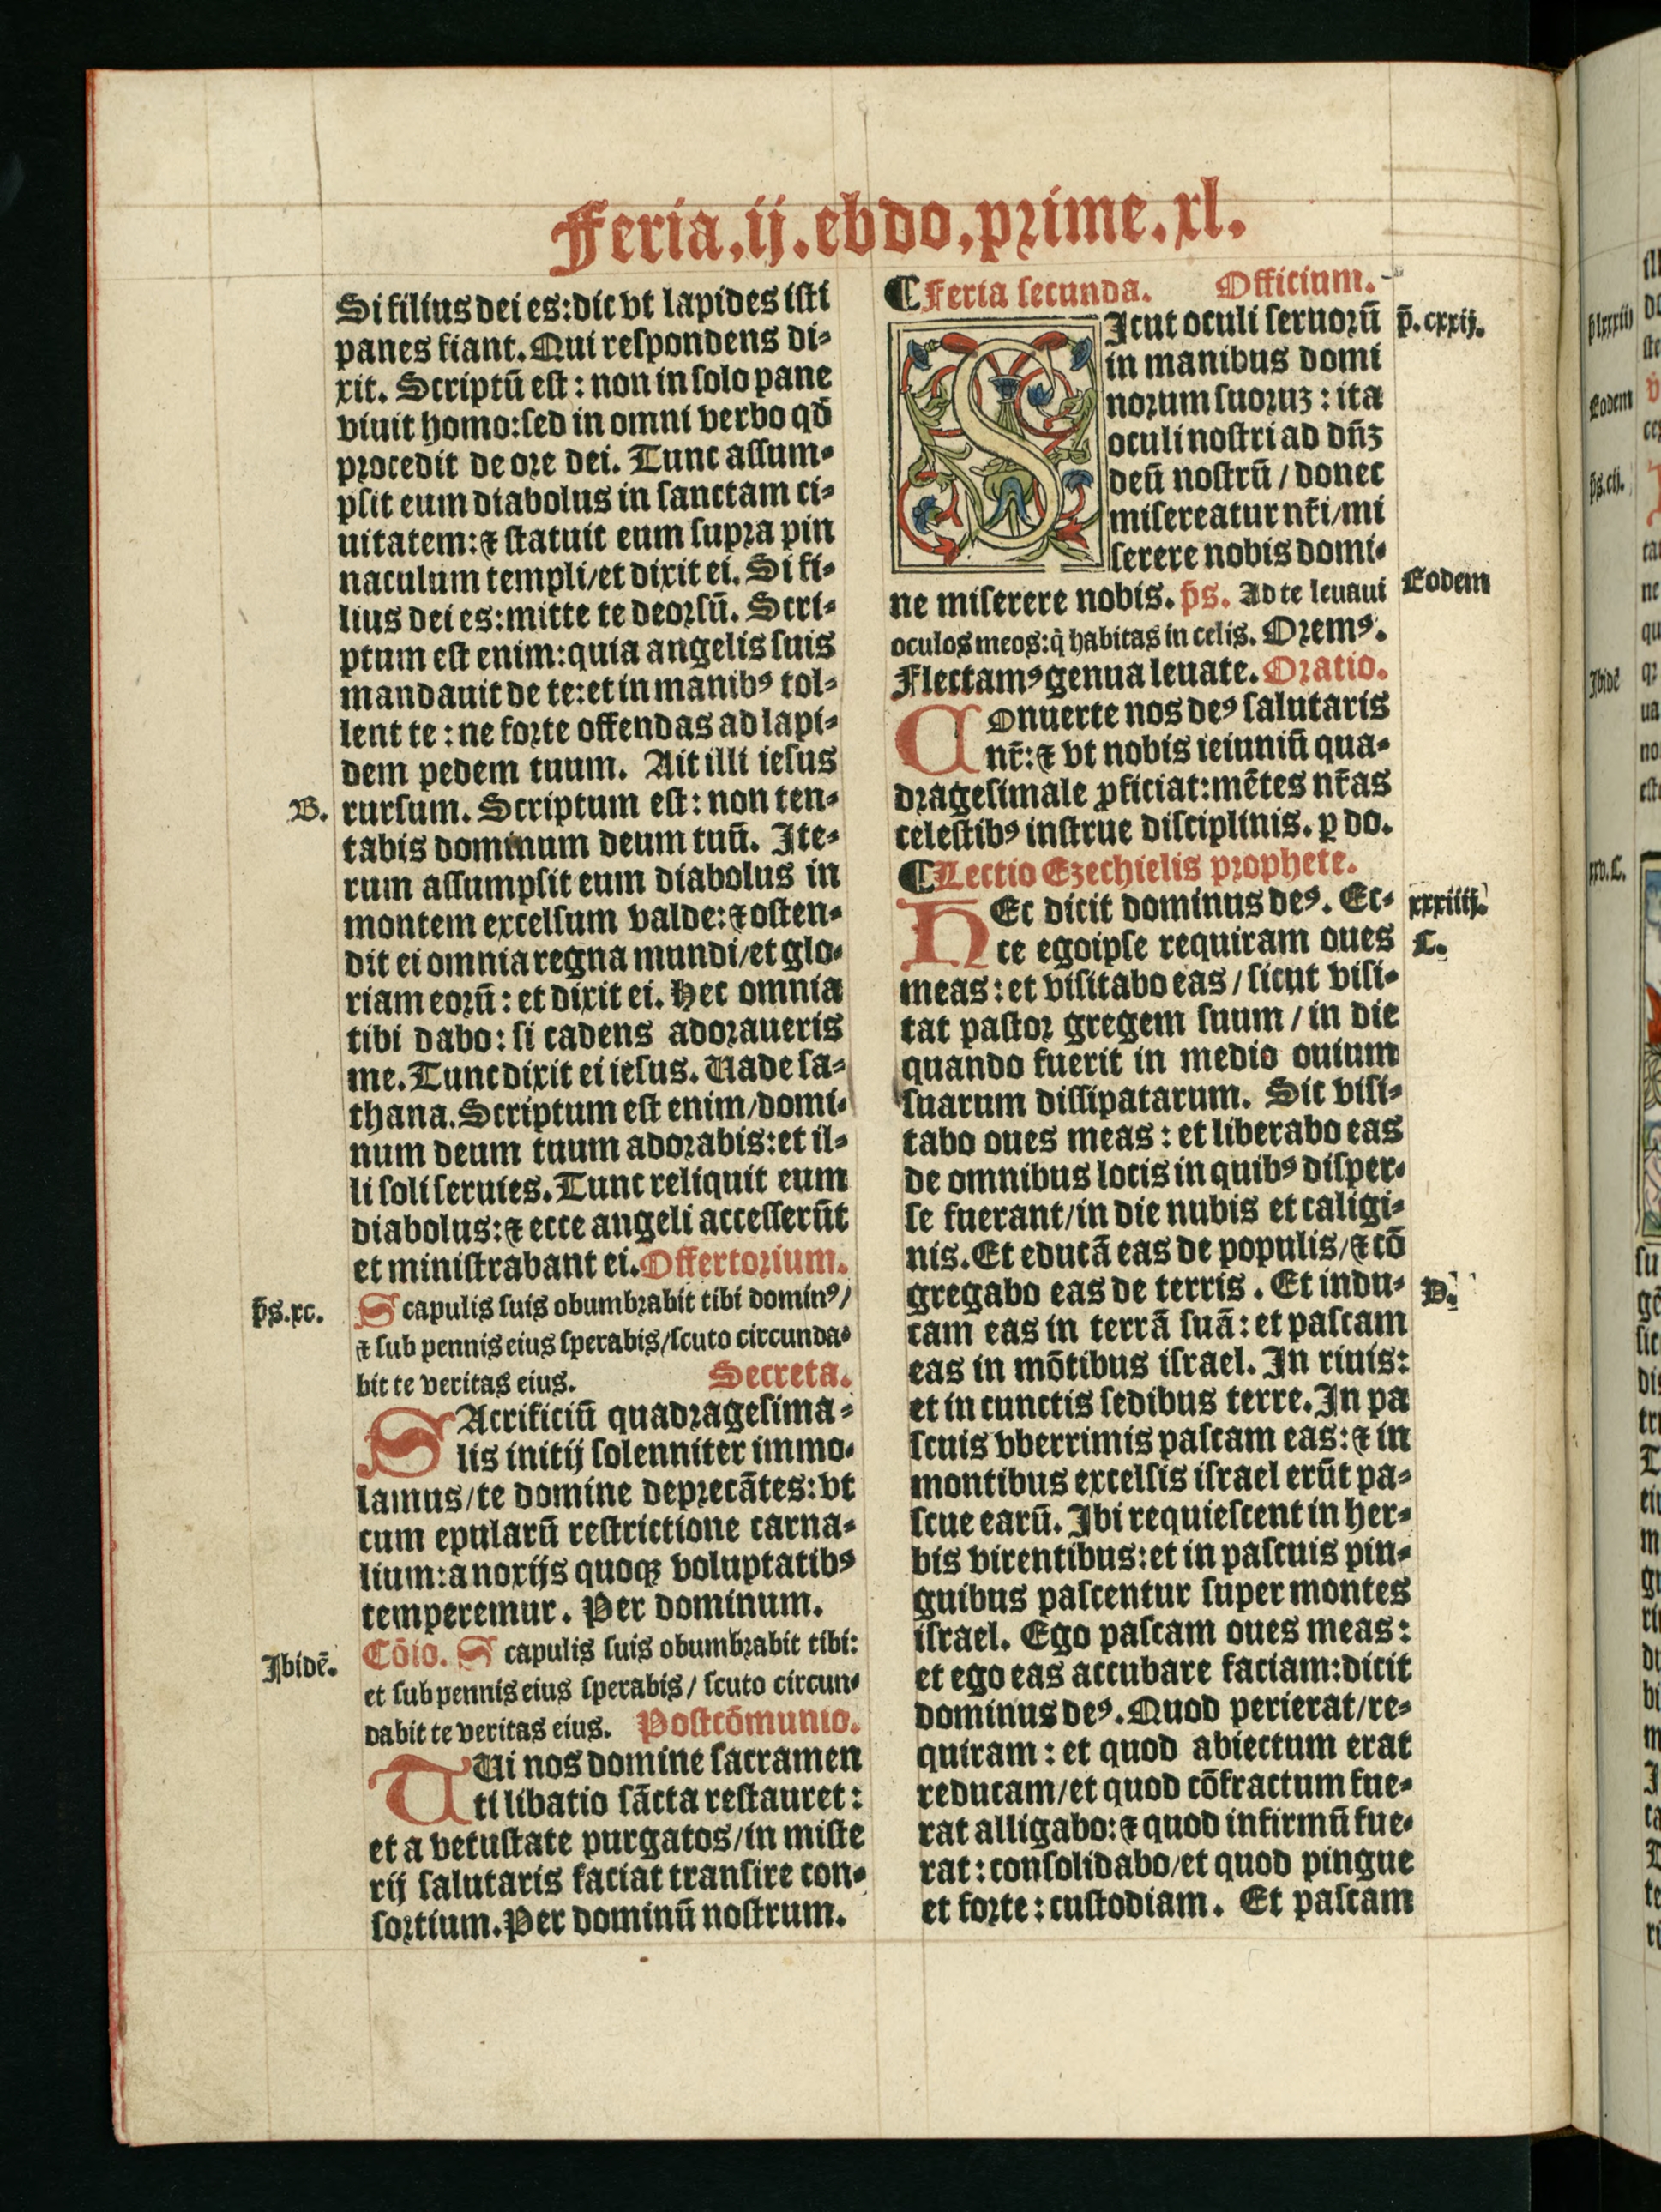 Feria.ij.ebdo.prime.xl.
Si filius dei es:dic vt lapides isti
panes fiant. Qui respondens di-
xit. Scriptū est: non in solo pane
viuit homo:sed in omni verbo qđ
procedit de ore dei. Tunc assum-
psit eum diabolus in sanctam ci-
uitatem:⁊ statuit eum supra pin
naculum templi/et dixit ei. Si fi-
lius dei es:mitte te deorsū. Scri-
ptum est enim:quia angelis suis
mandauit de te:et in manibꝰ tol-
lent te: ne forte offendas ad lapi-
dem pedem tuum. Ait illi iesus
B. rursum. Scriptum est: non ten-
tabis dominum deum tuū. Ite-
rum assumpsit eum diabolus in
montem excelsum valde:⁊ osten-
dit ei omnia regna mundi/et glo-
riam eorū: et dixit ei. Hec omnia
tibi dabo: si cadens adoraueris
me. Tunc dixit ei iesus. Uade sa-
thana. Scriptum est enim/domi-
num deum tuum adorabis:et il-
li soli seruies. Tunc reliquit eum
diabolus:⁊ ecce angeli accesserūt
et ministrabant ei. Offertorium.
p̄s.xc. Scapulis suis obumbrabit tibi dominꝰ/
⁊ sub pennis eius sperabis/scuto circunda-
bit te veritas eius. Secreta.
SAcrificiū quadragesima-
lis initij solenniter immo-
lamus/te domine deprecātes:vt
cum epularū restrictione carna-
lium:a noxijs quoqꝫ voluptatibꝰ
temperemur. Per dominum.
Ibidē. Cōio. Scapulis suis obumbrabit tibi:
et sub pennis eius sperabis/ scuto circun-
dabit te veritas eius. Postcōmunio.
TUi nos domine sacramen
ti libatio sācta restauret:
et a vetustate purgatos/in miste
rij salutaris faciat transire con-
sortium. Per dominū nostrum.
¶Feria secunda. Officium.
SIcut oculi seruorū p̄.cxxij.
in manibus domi
norum suoruꝫ: ita
oculi nostri ad dn̄ꝫ
deū nostrū / donec
misereatur nr̄i/mi
serere nobis domi-
ne miserere nobis. p̄s. Ad te leuaui Eodem
oculos meos:q̇ habitas in celis. Oremꝰ.
Flectamꝰ genua leuate. Oratio.
COnuerte nos deꝰ salutaris
nr̄:⁊ vt nobis ieiuniū qua-
dragesimale ꝓficiat:mētes nr̄as
celestibꝰ instrue disciplinis. ꝑ do.
¶Lectio Ezechielis prophete.
HEc dicit dominus deꝰ. Ec- xxxiiij.
ce ego ipse requiram oues C.
meas: et visitabo eas / sicut visi-
tat pastor gregem suum / in die
quando fuerit in medio ouium
suarum dissipatarum. Sic visi-
tabo oues meas: et liberabo eas
de omnibus locis in quibꝰ disper-
se fuerant/in die nubis et caligi-
nis. Et educā eas de populis/⁊ cō
gregabo eas de terris. Et indu- D.
cam eas in terrā suā: et pascam
eas in mōtibus israel. In riuis:
et in cunctis sedibus terre. In pa
scuis vberrimis pascam eas:⁊ in
montibus excelsis israel erūt pa-
scue earū. Ibi requiescent in her-
bis virentibus:et in pascuis pin-
guibus pascentur super montes
israel. Ego pascam oues meas:
et ego eas accubare faciam:dicit
dominus deꝰ. Quod perierat/re-
quiram: et quod abiectum erat
reducam/et quod cōfractum fue-
rat alligabo:⁊ quod infirmū fue-
rat: consolidabo/et quod pingue
et forte: custodiam. Et pascam